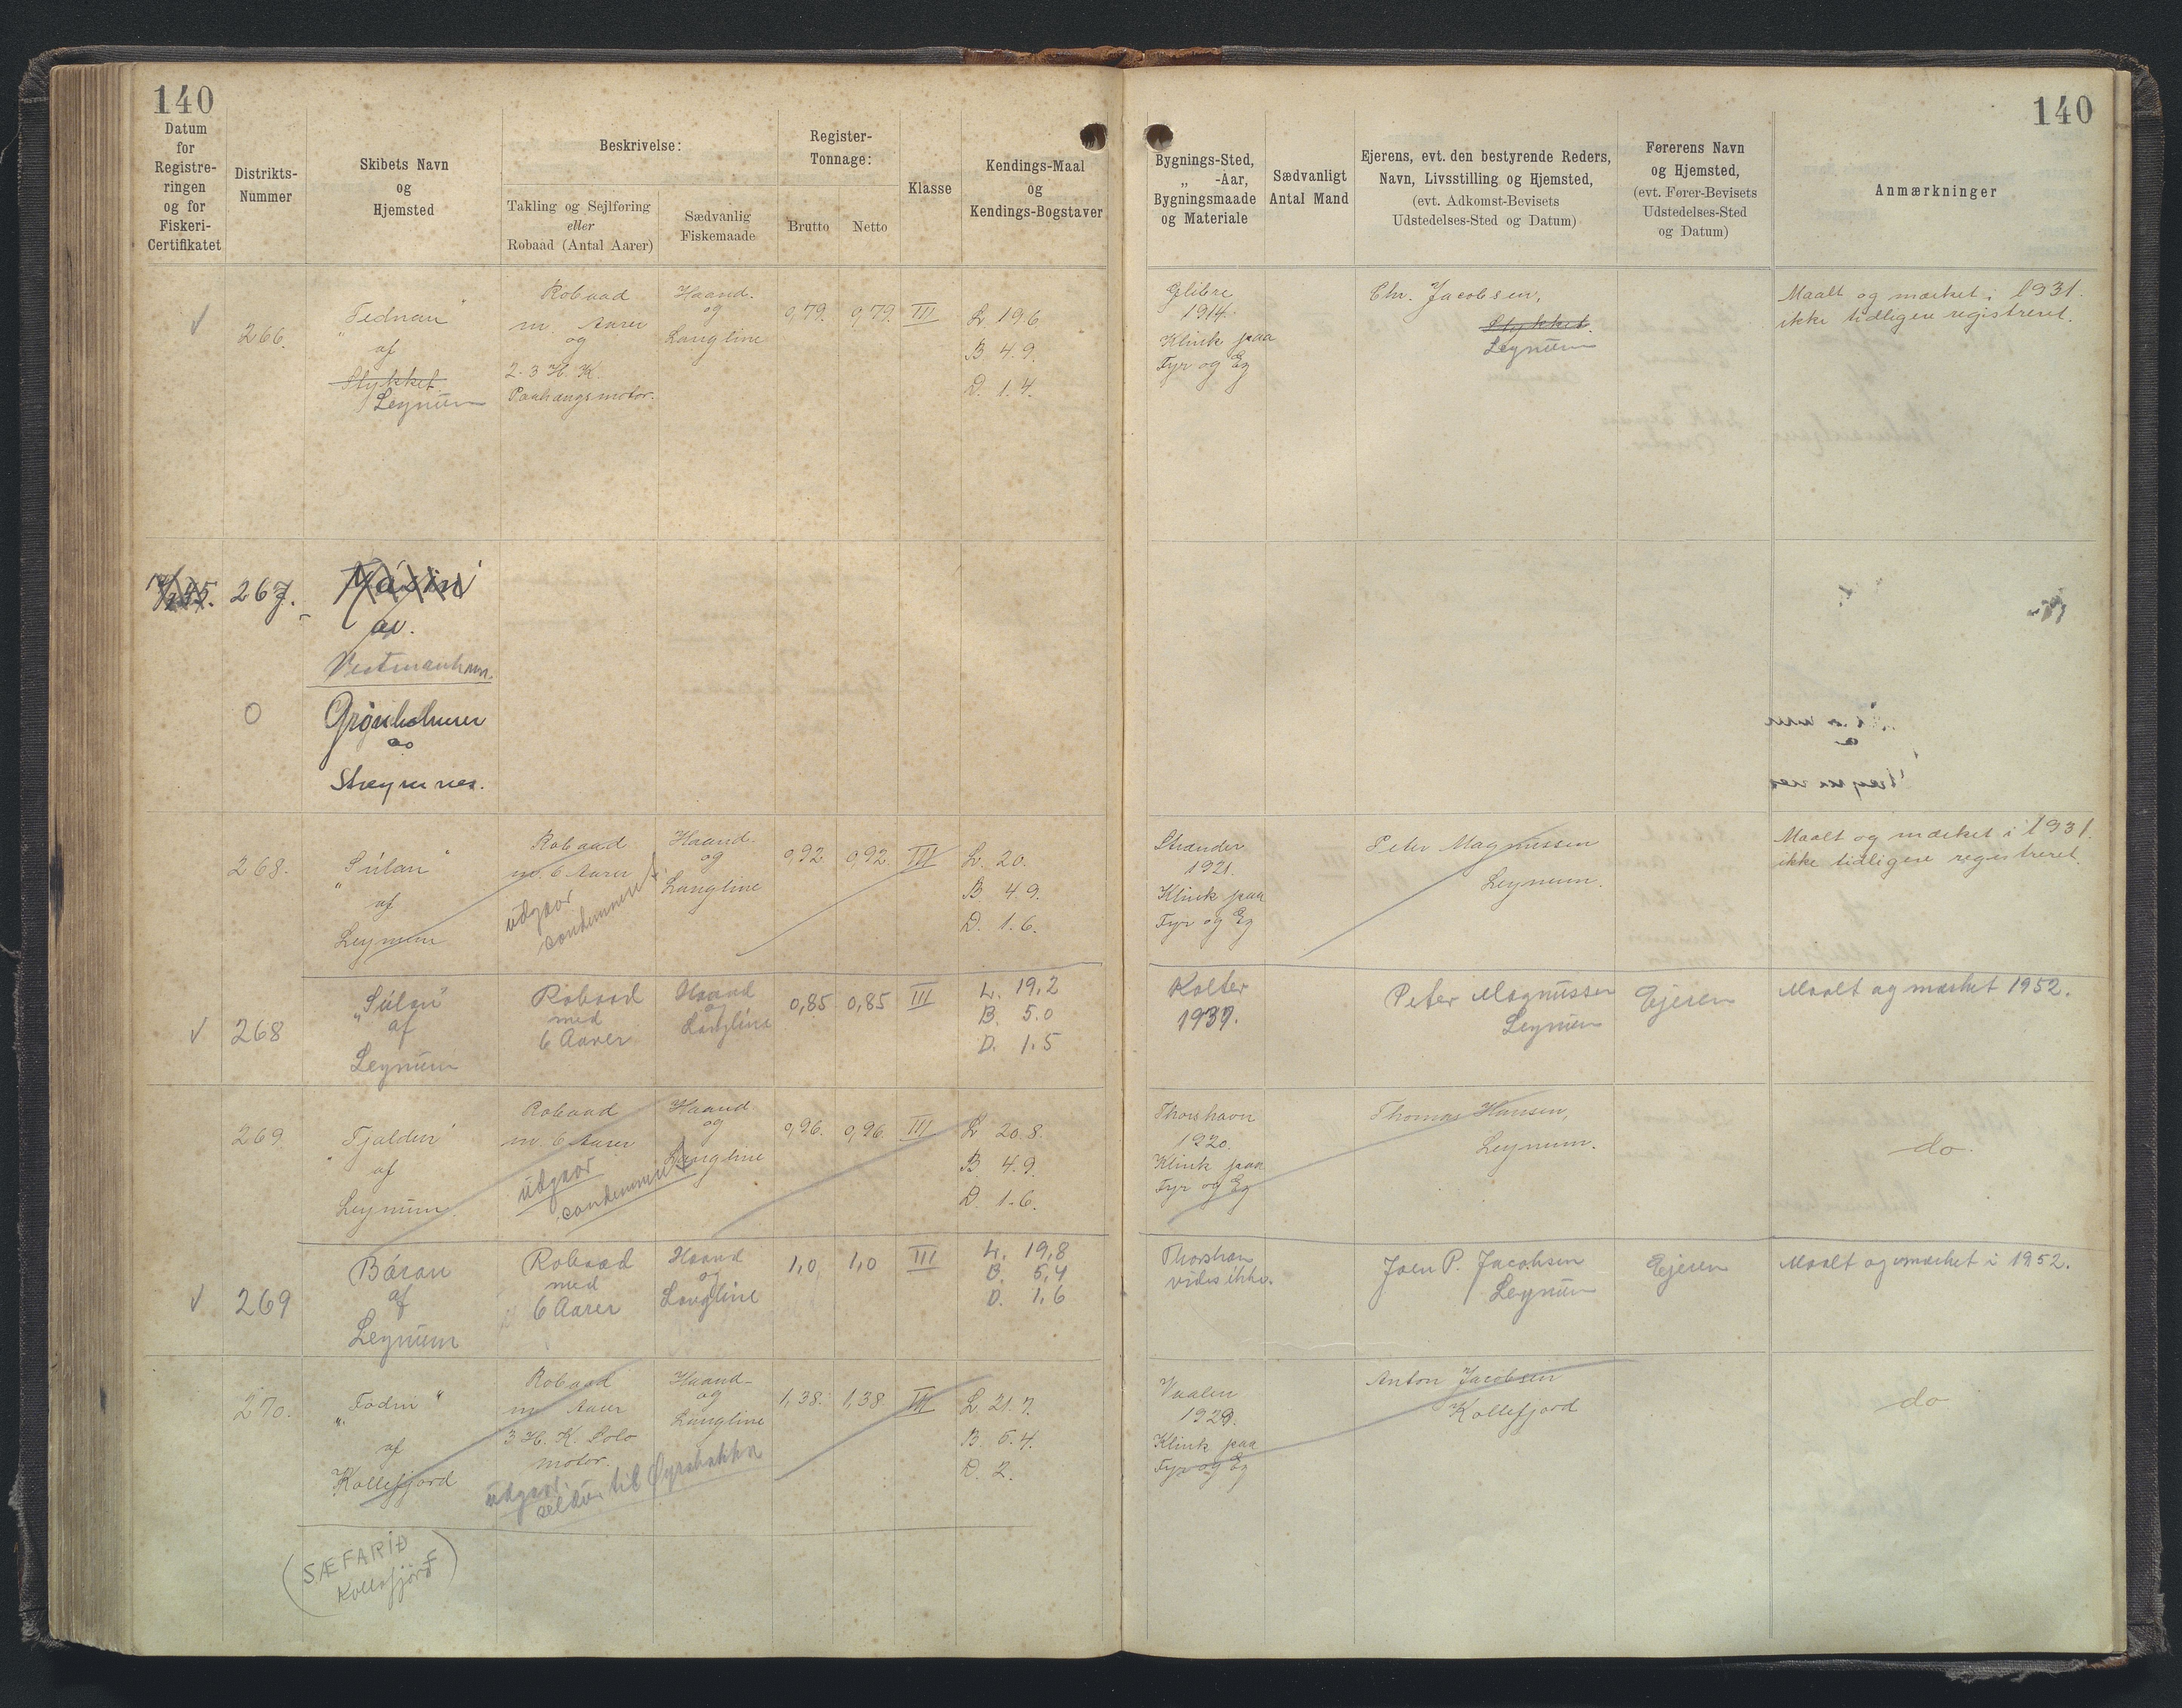 140
140
Datum
for
Registre-
ringen
og for
Fiskeri-
Certifikatet
Distrikts-
Nummer
Skibets Navn
og
Hjemsted
Beskrivelse:
Takling og Sejlføring
eller
Robaad (Antal Aarer)
Sædvanlig
Fiskemaade
Register-
Tonnage:
Brutto
Netto
Klasse
Kendings-Maal
og
Kendings-Bogstaver
Bygnings-Sted,
„ -Aar,
Bygningsmaade
og Materiale
Sædvanligt
Antal Mand
Ejerens, evt. den bestyrende Reders,
Navn, Livsstilling og Hjemsted,
(evt. Adkomst-Bevisets
Udstedelses-Sted og Datum)
Førerens Navn
og Hjemsted,
(evt. Fører-Bevisets
Udstedelses-Sted
og Datum)
Anmærkninger
✓
266.
af
Stykket.
Leynum
Robaad
m. Aarer
og
2-3 H. K.
Paahangsmotor.
Haand-
og
Langline
0,79.
0,79.
III
L 19.6
B. 4.9.
D. 1.4.
1914.
Klink paa
Fyr og Eg
Chr. Jacobsen,
Stykket.
Leynum
Maalt og mærket i 1931.
ikke tidligere registreret.
267.
av.
Vestmanhavn.
Grønholmur
ao
Streymnes.
268.
„Súlan"
af
Leynum
Robaad
m. 6 Aarer
udgaar
condemneret
Haand-
og
Langline
0,92
0,92.
III
L. 20.
B 4.9.
D. 1.6.
Strænder
1921.
Klink paa
Fyr og Eg
Peter Magnussen
Leynum.
Maalt og mærket i 1931.
ikke tidligere registreret.
✓
268
„Súlan"
af
Leynum
Robaad
med
6 Aarer
Haand
og
Langline
0,85
0,85
III
L. 19,2
B. 5.0
D. 1.5
Kolter
1937.
Peter Magnussen
Leynum
Ejeren
Maalt og mærket 1952.
269
„Tjaldur"
af
Leynum.
Robaad
m. 6 Aarer
udgaar
condemneret
Haand
og
Langline
0,96.
0,96.
III
L 20.8.
B 4.9.
D. 1.6.
Thorshavn
1920.
Klink paa
Fyr og Eg
Thomas Hansen,
Leynum.
do.
✓
269
Báran
af
Leynum
Robaad
med
6 Aarer
Haand
og
Langline
1,0
1,0
III
L. 19,8
B. 5,4
D. 1,6
Thorshavn
vides ikke.
Joen P. Jacobsen
Leynum
Ejeren
Maalt og mærket i 1952.
270.
af
Kollefjord
Robaad
m. Aarer
3 H. K. Solo
motor.
udgaar
til Øyrabakka
Haand-
og
Langline
1,38.
1,38
III
L. 21.7.
B 5.4.
D. 2.
Vaalen
1929.
Klink paa
Fyr og Eg
Anton Jacobsen
Kollefjord
do
(SÆFARIÐ
Kollefjord)